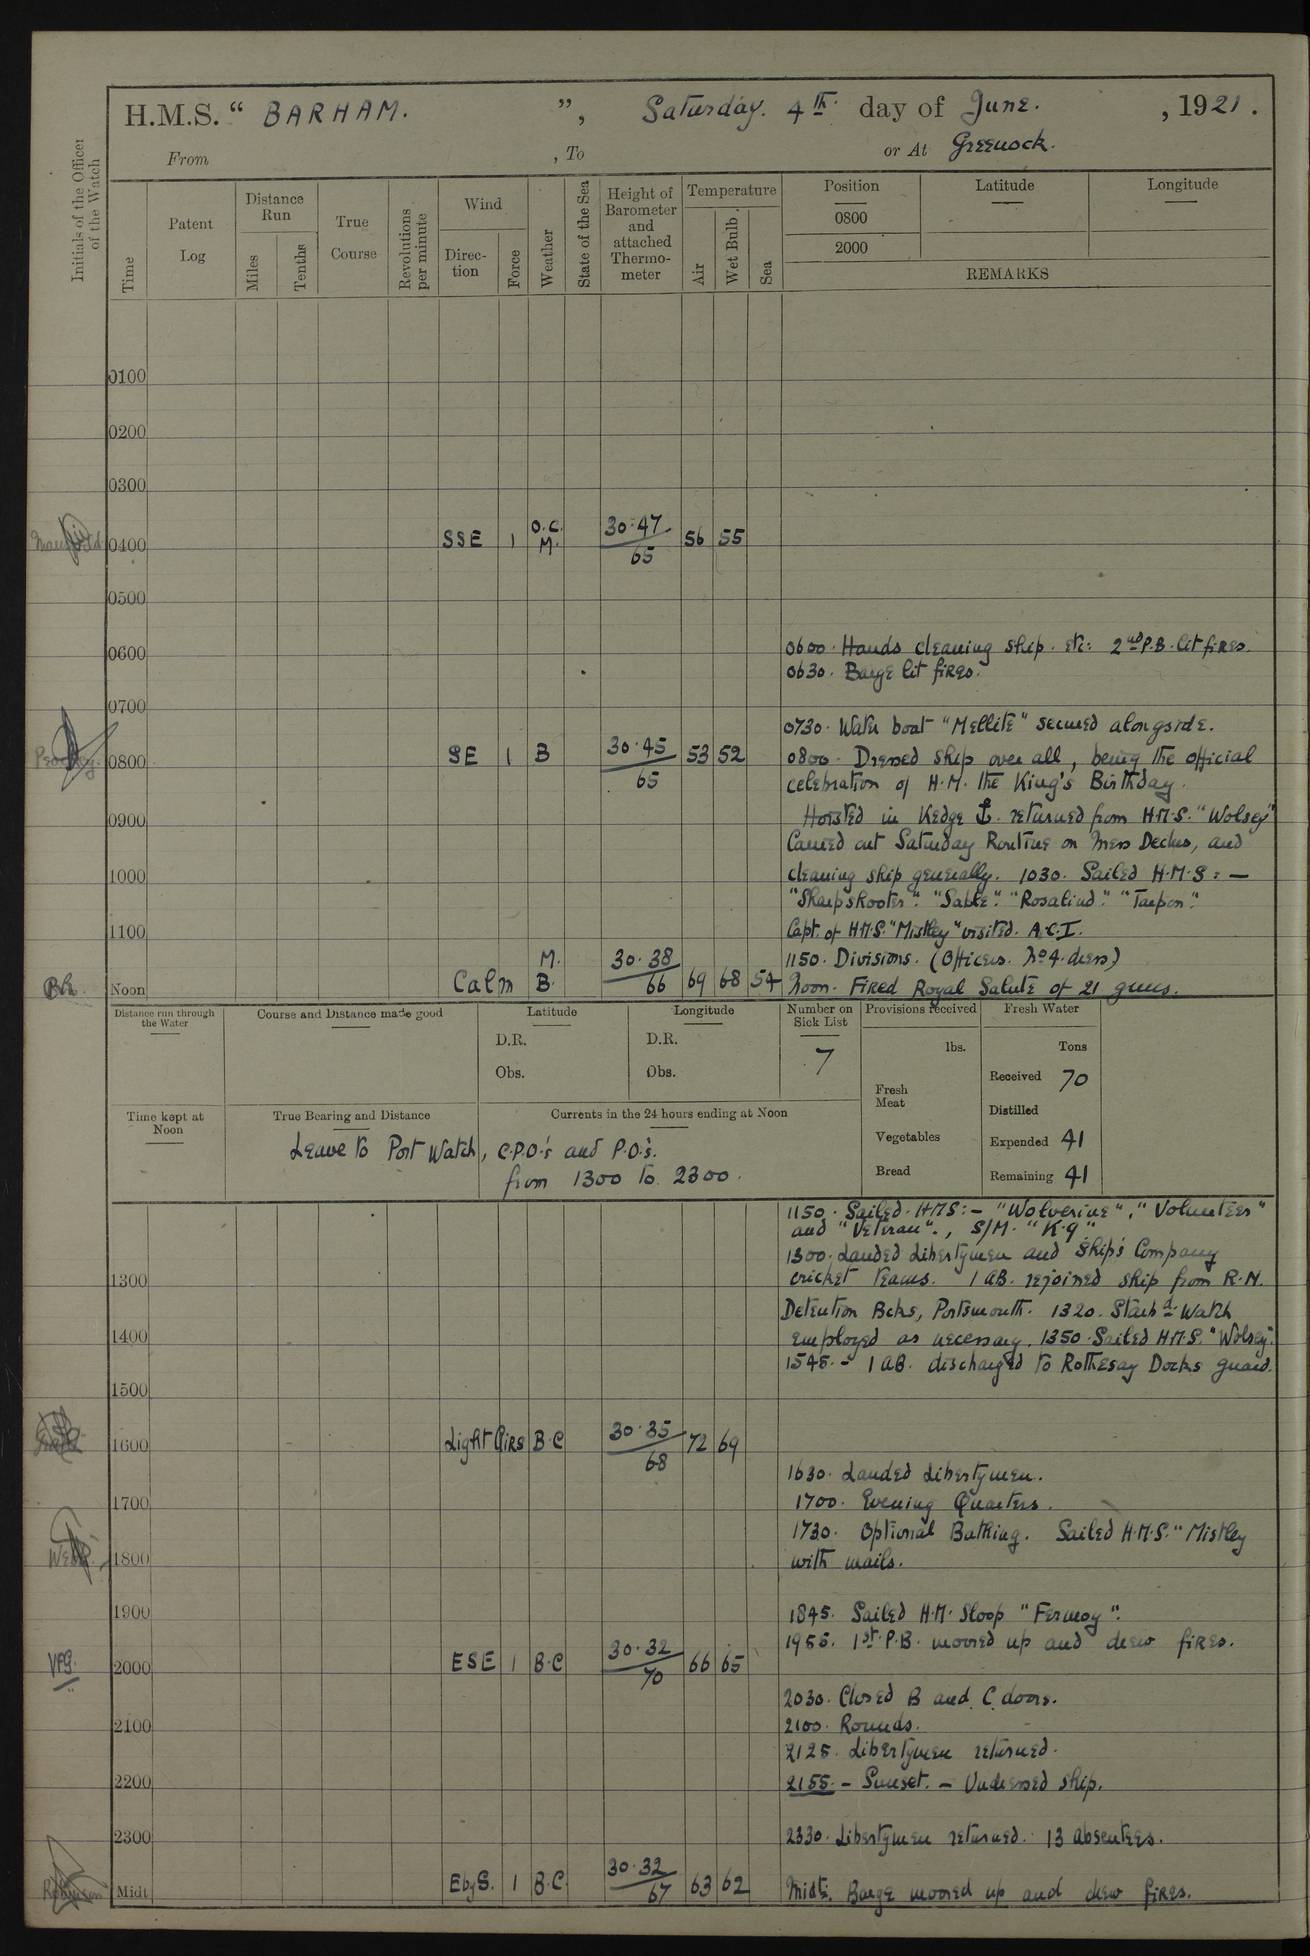 H.M.S. “ BARHAM. ”, Saturday. 4th day of June. , 1921.
From , To or At Greenock.
Initials of the Officer of the Watch
Time
Patent Log
Distance Run
Miles
Tenths
True Course
Revolutions per minute
Wind
Direction
Force
Weather
State of the Sea
Height of Barometer and attached Thermometer
Temperature
Air
Wet Bulb
Sea
Position Latitude Longitude
0800
2000
REMARKS
0100
0200
0300
0400 SSE 1 O.C. M. 30.47 65 56 55
0500
0600
0600. Hands cleaning ship. etc: 2nd P.B. lit fires.
0630. Barge lit fires.
0700
0730. Water boat "Mellite" secured alongside.
0800 SE 1 B 30.45 65 53 52
0800. Dressed ship over all, being the official
celebration of H.M. the King's Birthday.
0900
Hoisted in Kedge ⚓. returned from H.M.S. "Wolsey"
Carried out Saturday Routine on Mess Decks, and
1000
cleaning ship generally. 1030. Sailed H.M.S: —
"Sharpshooter". "Sable". "Rosalind". "Tarpon".
1100
Capt. of H.M.S. "Mistley" visited. A.C.I.
1150. Divisions. (Officers. No 4. dress)
Noon Calm M. B. 30.38 66 69 68 54
Noon. Fired Royal Salute of 21 guns.
Distance run through the Water
Course and Distance made good
Latitude
D.R.
Obs.
Longitude
D.R.
Obs.
Number on Sick List
7
Provisions received
lbs.
Fresh Meat
Vegetables
Bread
Fresh Water
Tons
Received 70
Distilled
Expended 41
Remaining 41
Time kept at Noon
True Bearing and Distance
Currents in the 24 hours ending at Noon
Leave to Port Watch, C.P.O's and P.O's.
from 1300 to 2300.
1150. Sailed. HMS:- "Wolverine", "Volunteer"
and "Veteran"., S/M. "K.9"
1300. Landed libertymen and Ship's Company
1300
cricket teams. 1 AB. rejoined ship from R.N.
Detention Bcks, Portsmouth. 1320. Starbd Watch
1400
employed as necessary. 1350. Sailed H.M.S. "Wolsey".
1545. - 1 AB. discharged to Rothesay Docks guard.
1500
1600 Light Airs B.C 30.35 68 72 69
1630. Landed libertymen.
1700
1700. Evening Quarters.
1730. Optional Bathing. Sailed H.M.S. "Mistley
1800
with mails.
1900
1845. Sailed H.M. Sloop "Fermoy".
1955. 1st P.B. moored up and drew fires.
2000 ESE 1 B.C 30.32 70 66 65
VFG.
2030. Closed B and C doors.
2100
2100. Rounds.
2125. Libertymen returned.
2200
2155. - Sunset. - Undressed ship.
2300
2330. Libertymen returned. 13 absentees.
Midt EbyS. 1 B.C. 30.32 67 63 62
Midt. Barge moored up and drew fires.